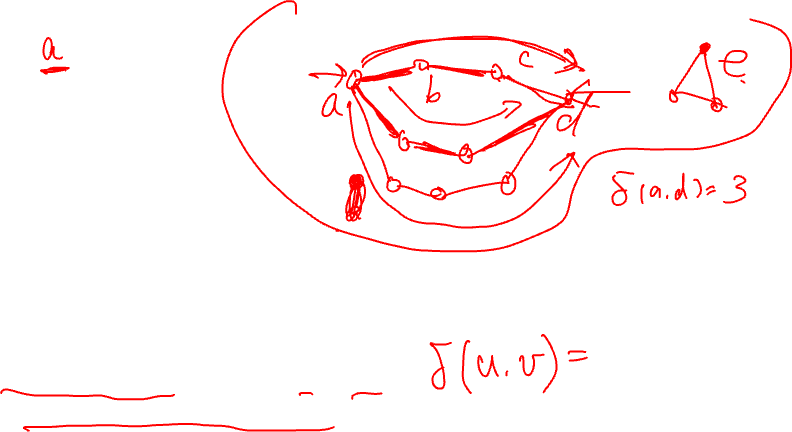 a
c
b
a
d
e
δ(a.d)=3
δ(u.v)=